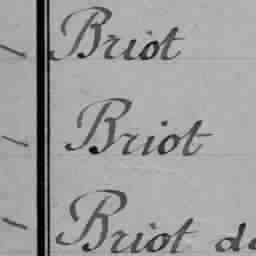 Briot
Briot
Briot de